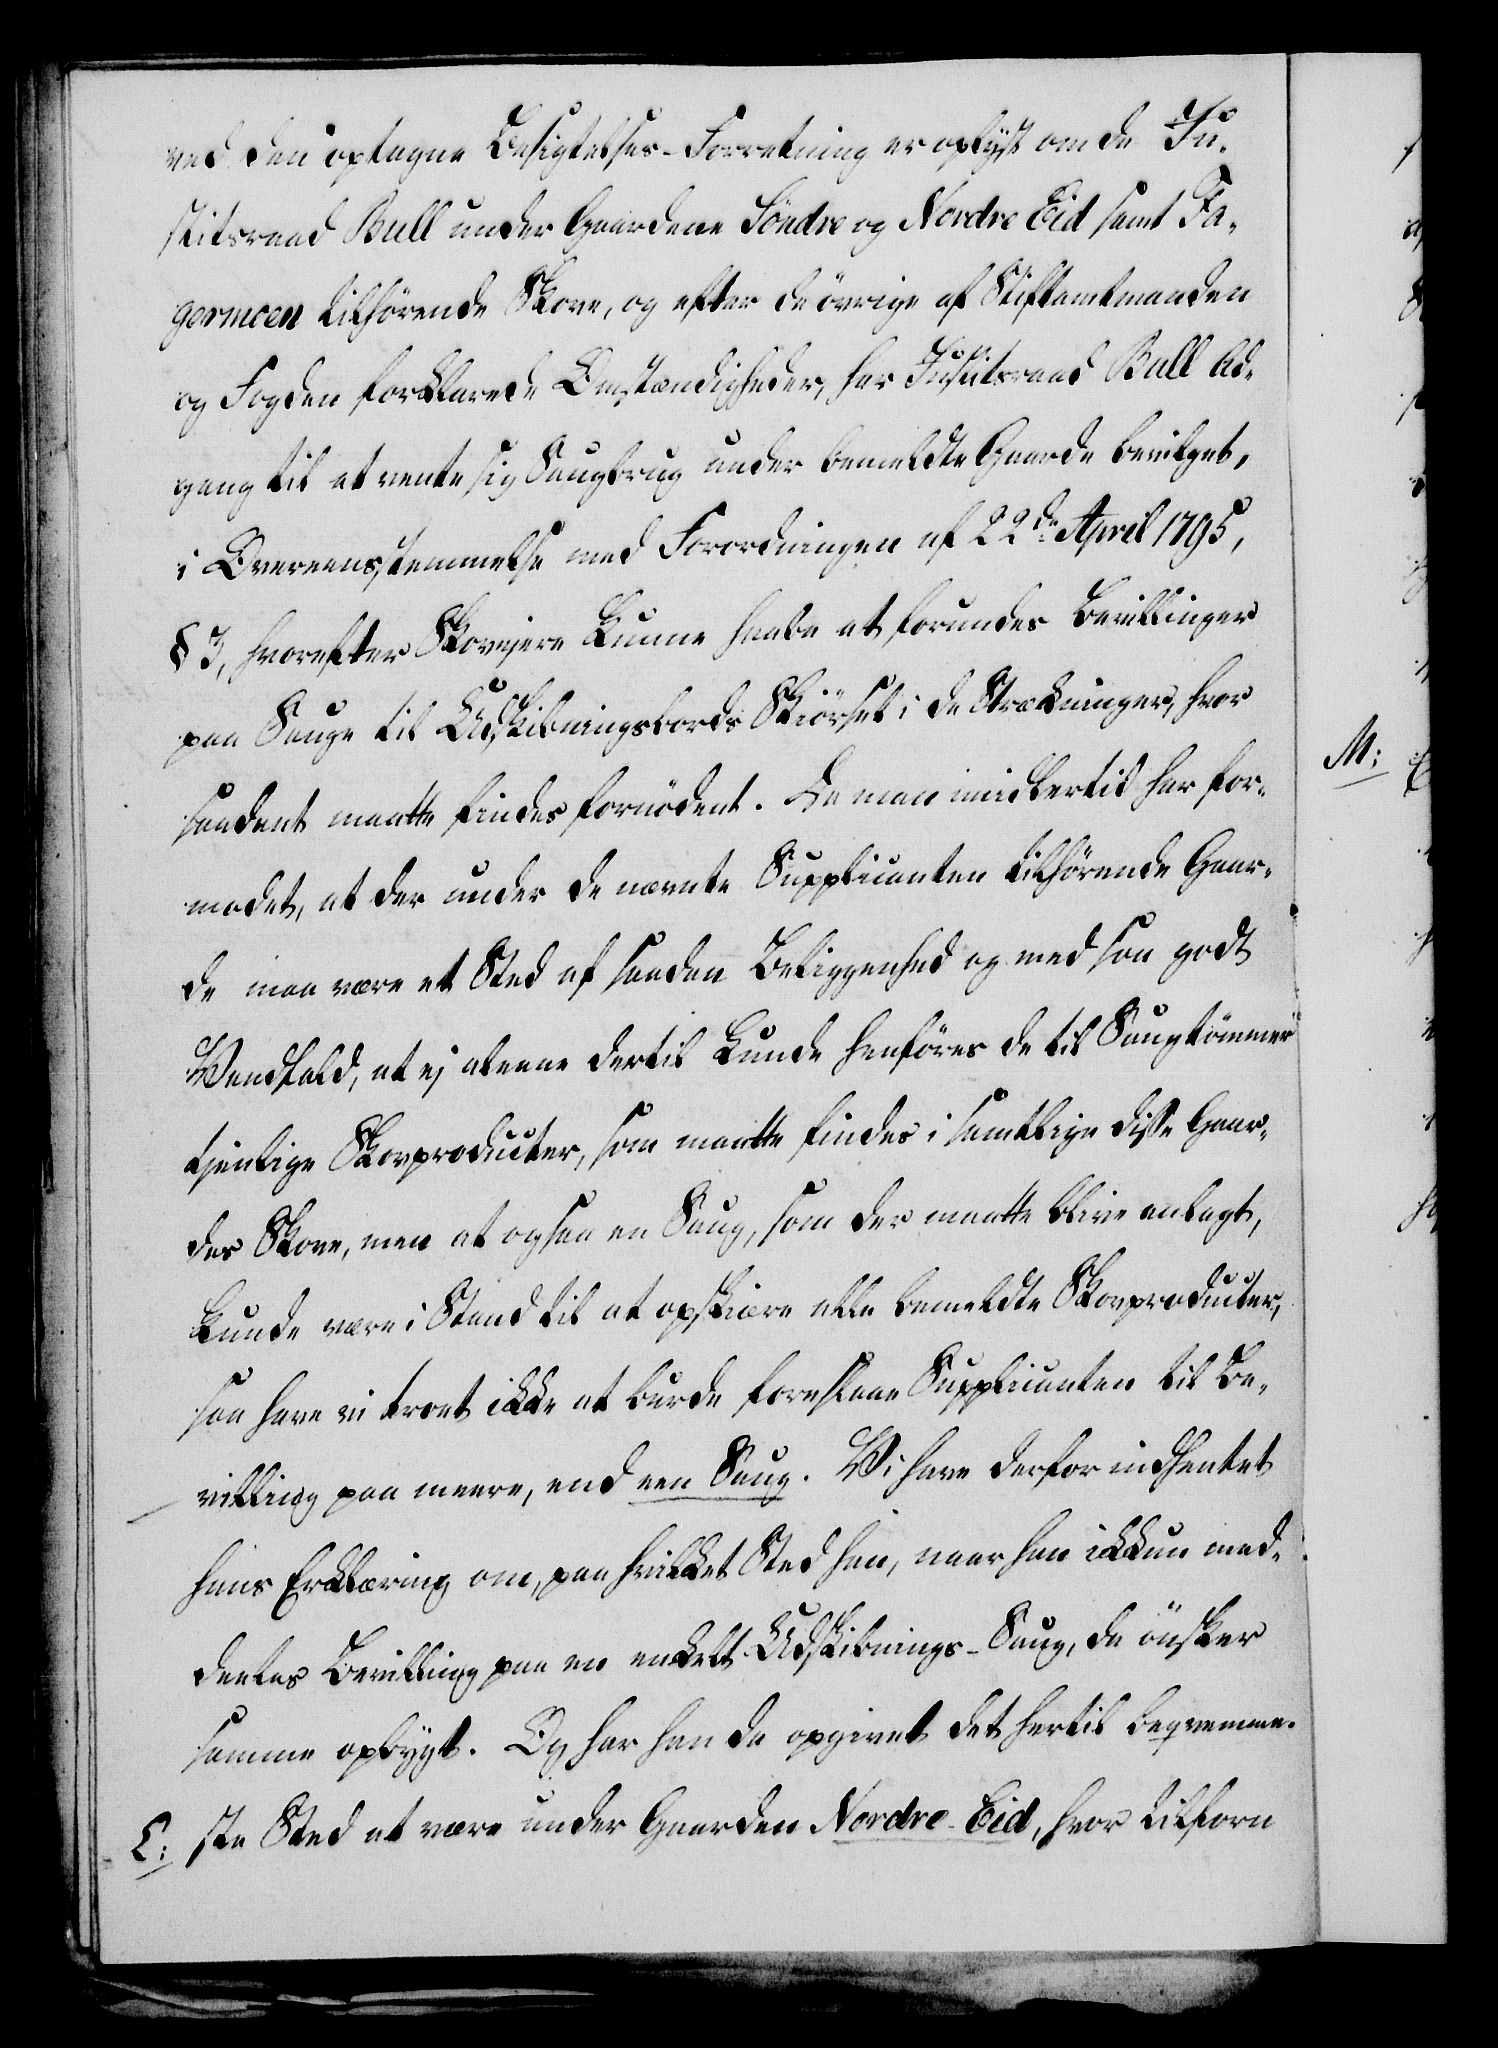 ved den optagne Besigtelses-Forretning er oplyst om de Ju-
stitsraad Bull under Gaardene Söndre og Nordre Eid samt Fa-
germoen tilhørende Skove, og efter de övrige af Stiftamtmanden
og Fogden forklarede Omstændigheder, har Justitsraad Bull Ad-
gang til at vente sig Saugbrug under bemeldte Gaarde bevilget,
i Overeensstemmelse med Forordningen af 22de April 1795,
§ 3, hvorefter Skovejere kunne haabe at forundes Bevillinger
paa Sauge til Udskibningsbords Skiörsel i de Strækninger, hvor
saadant maatte findes fornödent. Da man imidlertid har for-
modet, at der under de nævnte Supplicanten tilhörende Gaar-
de maa være et Sted af saadan Beliggenhed og med saa godt
Vandfald, at ej alene dertil kunde henföres de til Saugtömmer
tjenlige Skovproducter, som maatte findes i samtlige disse Gaar-
des Skove, men at ogsaa en Saug, som der maatte blive anlagt,
kunde være i Stand til at opskiære alle bemeldte Skovproducter,
saa have vi troet ikke at burde foreslaae Supplicanten til Be-
villing paa meere, end een Saug. Vi have derfor indhentet
hans Erklæring om, paa hvilket Sted han, naar han ikkun med-
deeles Bevilling paa en enkelt Udskibnings-Saug, da önsker
samme opbygt. Og har han da opgivet det hertil beqvemme-
L: ste Sted at være under Gaarden Nordre-Eid, hvor tilforn
M: